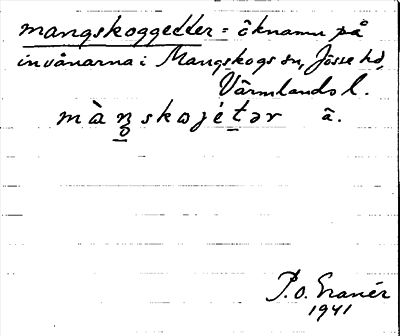 mangskoggedder = öknamn på
invånarna i Mangskogs sn, Jösse hd,
Värmlands l.
màŋskojétər ä.
P.O. Granér
1941